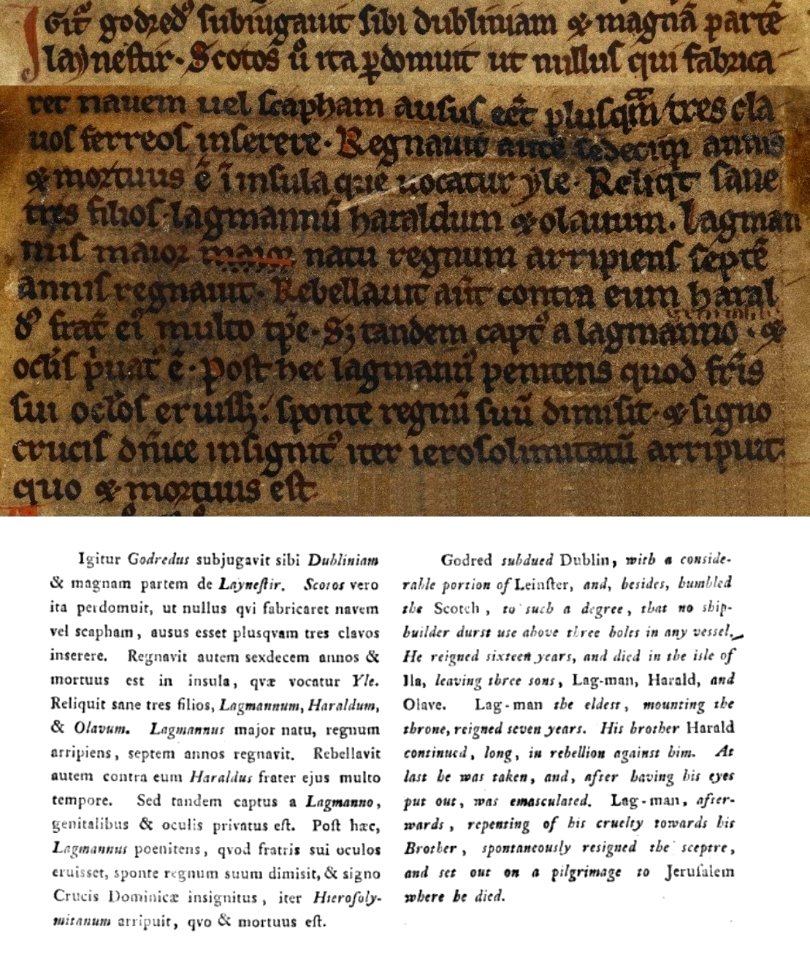 Igit᷒ godred᷒ subiugauit sibi dubliniam & magnā partē
laynestir. Scotos ů ita ꝑdomuit ut nullus qui fabrica
ret nauem uel scapham ausus eēt plusqm̄ tres cla
uos ferreos inserere. Regnauit aute sedecim annis
& mortuus ē ī insula que uocatur yle. Reliqt sane
tres filios. lagmannū haraldum & olauum. lagman
nus maior maior natu regnum arripiens septē
annis regnauit. Rebellauit aūt contra eum haral
d᷒ frat̄ ei᷒ multo tp̄e. Sꝫ tandem capt᷒ a lagmanno. &
genitalib᷒
oclis p̍uat᷒ ē. Post hec lagmann᷒ penitens quod fr̄is
sui oclos eruiss; sponte regnū suū dimisit. & signo
crucis dn̄ice insignit᷒ iter ierosolimitatū arripuit.
quo & mortuus est.
Igitur Godredus subjugavit sibi Dubliniam
& magnam partem de Layneſtir. Scotos vero
ita perdomuit, ut nullus qvi fabricaret navem
vel scapham, ausus esset plusqvam tres clavos
inserere. Regnavit autem sexdecem annos &
mortuus est in insula, qvæ vocatur Yle.
Reliquit sane tres filios, Lagmannum, Haraldum,
& Olavum. Lagmannus major natu, regnum
arripiens, septem annos regnavit. Rebellavit
autem contra eum Haraldus frater ejus multo
tempore. Sed tandem captus a Lagmanno,
genitalibus & oculis privatus eſt. Poſt hæc,
Lagmannus poenitens, qvod fratris sui oculos
eruisset, sponte regnum suum dimisit, & signo
Crucis Dominicæ insignitus, iter Hierosoly-
mitanum arripuit, qvo & mortuus eſt.
Godred subdued Dublin, with a conside-
rable portion of Leinſter, and, besides, humbled
the Scotch, to such a degree, that no ship-
builder durst use above three bolts in any vessel.
He reigned sixteen years, and died in the isle of
Ila, leaving three sons, Lag-man, Harald, and
Olave. Lag-man the eldest, mounting the
throne, reigned seven years. His brother Harald
continued, long, in rebellion against him. At
last he was taken, and, after having his eyes
put out, was emasculated. Lag-man, after-
wards, repenting of his cruelty towards his
Brother, spontaneously resigned the sceptre,
and set out on a pilgrimage to Jerusalem
where he died.